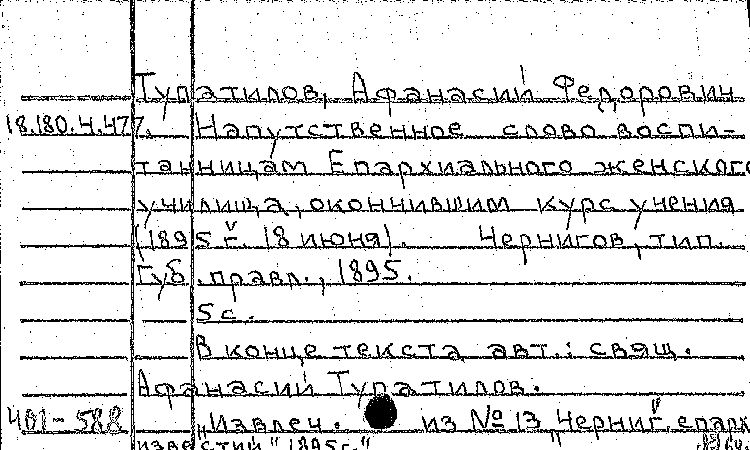 Тупатилов, Афанасий Федорович
18.180.4.477. Напутственное слово воспи-
танницам Епархиального женского
училища, окончившим курс учения
(1895 г. 18 июня). Чернигов, тип.
Губ. правл., 1895.
5 с.
В конце текста авт.: свящ.
Афанасий Тупатилов.
401-588 „Извлеч. из № 13 „Черниг. епарх.
известий" 1895 г."